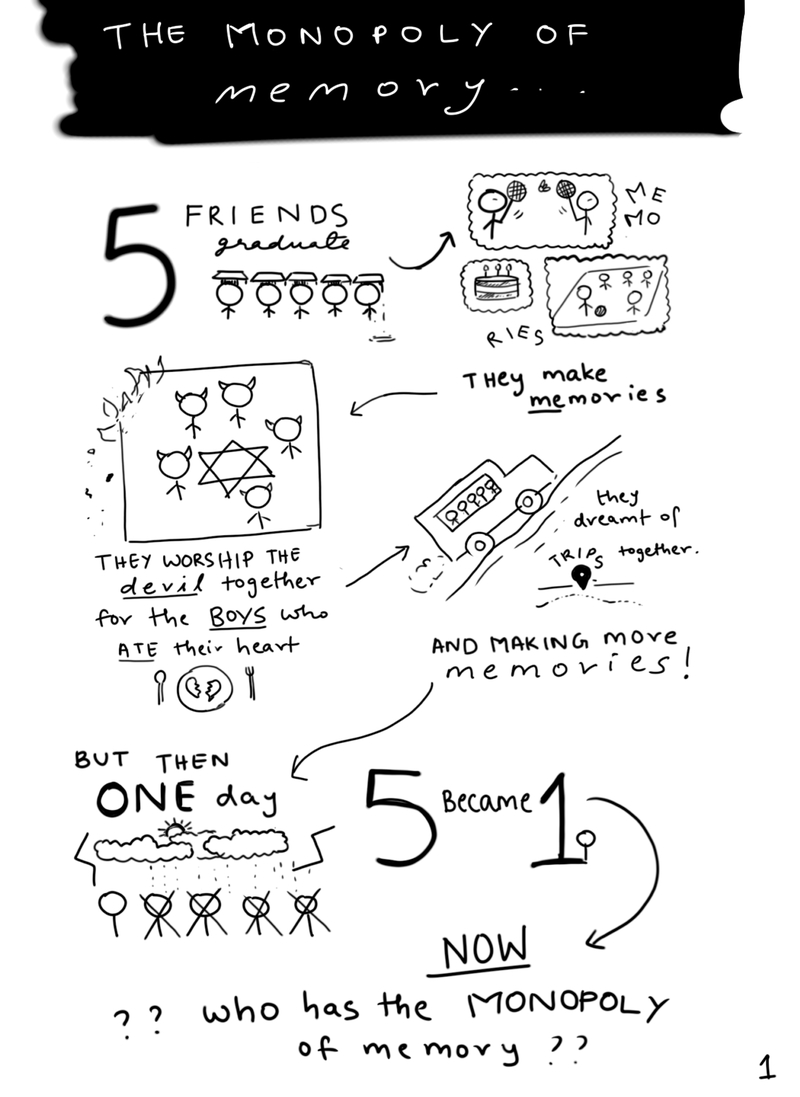 THE MONOPOLY OF
memory...
5 FRIENDS
graduate
ME
MO
RIES
THEY make
memories
THEY WORSHIP THE
devil together
for the BOYS who
ATE their heart
they
dreamt of
TRIPS together.
AND MAKING more
memories!
BUT THEN
ONE day
5 Became 1.
NOW
?? who has the MONOPOLY
of memory ??
1